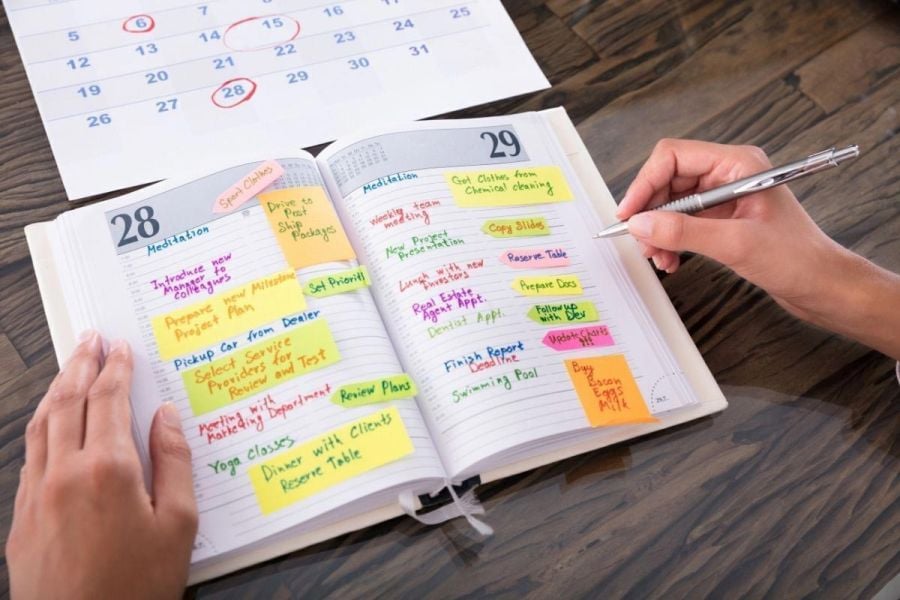 6 7 15 16 17
5 14 23 24 25
12 13 22 30 31
19 20 21 29
26 27 28
28
Sport Clothes
Drive to
Post
Ship
Packages
Meditation
Introduce new
Manager to
Colleagues
Set Prioriti
Prepare new Milestone
Project Plan
Pickup Car from Dealer
Select Service
Providers for
Review and Test
Review Plans
Meeting with
Marketing Department
Yoga Classes
Dinner with Clients
Reserve Table
29
Meditation
Got Clothes from
Chemical cleaning
Weekly team
meeting
Copy Slides
New Project
Presentation
Reserve Table
Lunch with new
Investors
Prepare Docs
Real Estate
Agent Appt.
Follow up
with Dev
Dentist Appt.
Update Charts
!!!
Finish Report
Deadline
Buy
Bacon
Eggs
Milk
Swimming Pool